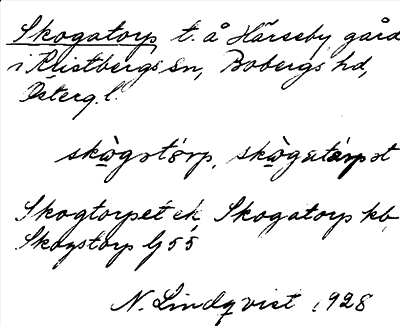 Skogatorp, t. å Härseby gård
i Klistbergs sn, Bobergs hd,
Österg.l.
skògatórp, skògatórpət
Skogtorpet ek, Skogatorp kb,
Skogstorp lj 55
N. Lindqvist 1928